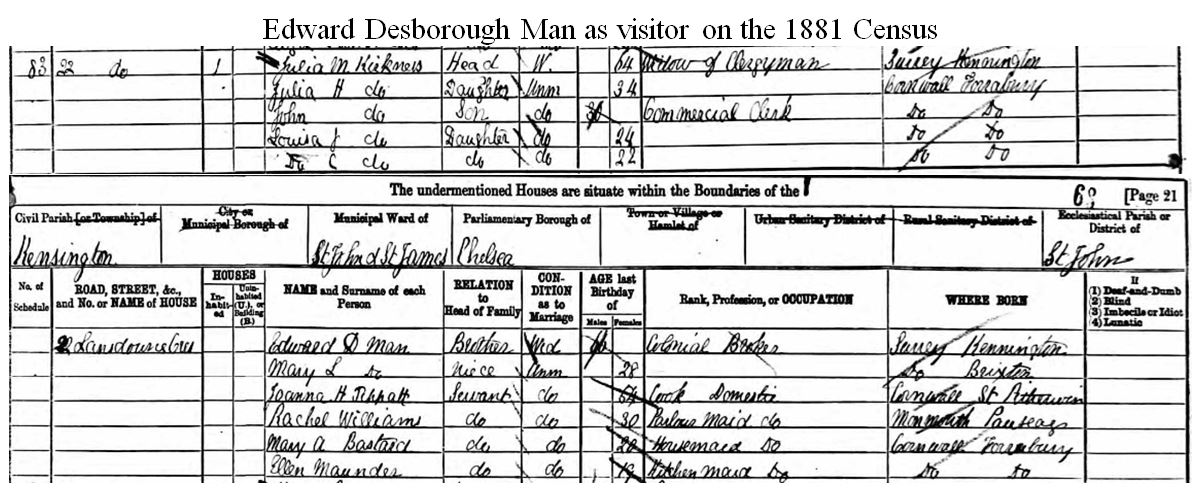 Edward Desborough Man as visitor on the 1881 Census
83 22 do 1 Julia M. Kirkness Head W. 64 Widow of Clergyman Surrey Kennington
Julia H do Daughter Unm 34 Cornwall Forrabury
John do Son do Commercial Clerk Do Do
Louisa J do Daughter do 24 Do Do
Do C do do do 22 Do Do
The undermentioned Houses are situate within the Boundaries of the
[Page 21
Civil Parish [or Township] of
City or Municipal Borough of
Municipal Ward of
Parliamentary Borough of
Town or Village or Hamlet of
Urban Sanitary District of
Rural Sanitary District of
Ecclesiastical Parish or District of
Kensington St John & St James Chelsea St John
No. of Schedule
ROAD, STREET, &c., and No. or NAME of HOUSE
HOUSES
In-habit-ed
Unin-habited (U.), or Building (B.)
NAME and Surname of each Person
RELATION to Head of Family
CON-DITION as to Marriage
AGE last Birthday of
Males Females
Rank, Profession, or OCCUPATION
WHERE BORN
If
(1) Deaf-and-Dumb
(2) Blind
(3) Imbecile or Idiot
(4) Lunatic
22 Lansdowne Cres Edward D Man Brother Wd Colonial Broker Surrey Kennington
Mary L Do Niece Unm 28 Do Brixton
Joanna H Tippett Servant do 64 Cook Domestic Cornwall St
Rachel Williams do do 30 Parlour Maid do Monmouth
Mary A Bastard do do Housemaid Do Cornwall Forrabury
Ellen Maunder do do 19 Kitchen Maid Do Do Do